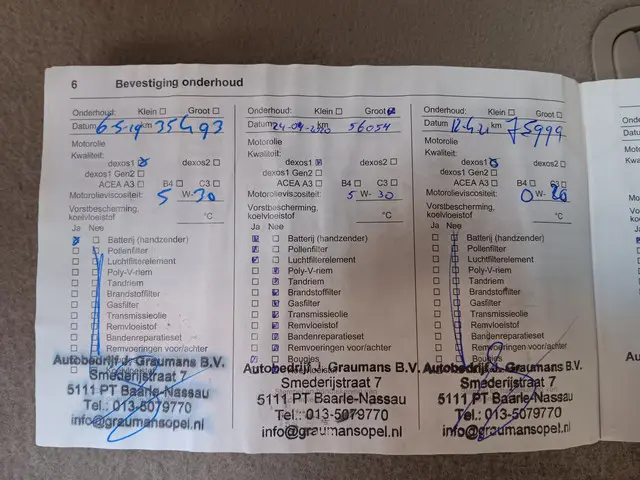 6 Bevestiging onderhoud
Onderhoud: Klein ☐ Groot ☐
Datum 6-5-19 km 35493
Motorolie
Kwaliteit:
dexos1 ☒ dexos2 ☐
dexos1 Gen2 ☐
ACEA A3 ☐ B4 ☐ C3 ☐
Motorolieviscositeit: 5 W- 30
Vorstbescherming, koelvloeistof °C
Ja Nee
Batterij (handzender)
Pollenfilter
Luchtfilterelement
Poly-V-riem
Tandriem
Brandstoffilter
Gasfilter
Transmissieolie
Remvloeistof
Bandenreparatieset
Remvoeringen voor/achter
Autobedrijf J. Graumans B.V.
Smederijstraat 7
5111 PT Baarle-Nassau
Tel.: 013-5079770
info@graumansopel.nl
Onderhoud: Klein ☐ Groot ☒
Datum 24-04-2020 km 56054
Motorolie
Kwaliteit:
dexos1 ☒ dexos2 ☐
dexos1 Gen2 ☐
ACEA A3 ☐ B4 ☐ C3 ☐
Motorolieviscositeit: 5 W- 30
Vorstbescherming, koelvloeistof °C
Ja Nee
Batterij (handzender)
Pollenfilter
Luchtfilterelement
Poly-V-riem
Tandriem
Brandstoffilter
Gasfilter
Transmissieolie
Remvloeistof
Bandenreparatieset
Remvoeringen voor/achter
Bougies
Autobedrijf J. Graumans B.V.
Smederijstraat 7
5111 PT Baarle-Nassau
Tel.: 013-5079770
info@graumansopel.nl
Onderhoud: Klein ☐ Groot ☐
Datum 12-4-21 km 75999
Motorolie
Kwaliteit:
dexos1 ☒ dexos2 ☐
dexos1 Gen2 ☐
ACEA A3 ☐ B4 ☐ C3 ☐
Motorolieviscositeit: 0 W- 20
Vorstbescherming, koelvloeistof °C
Ja Nee
Batterij (handzender)
Pollenfilter
Luchtfilterelement
Poly-V-riem
Tandriem
Brandstoffilter
Gasfilter
Transmissieolie
Remvloeistof
Bandenreparatieset
Remvoeringen voor/achter
Bougies
Autobedrijf J. Graumans B.V.
Smederijstraat 7
5111 PT Baarle-Nassau
Tel.: 013-5079770
info@graumansopel.nl